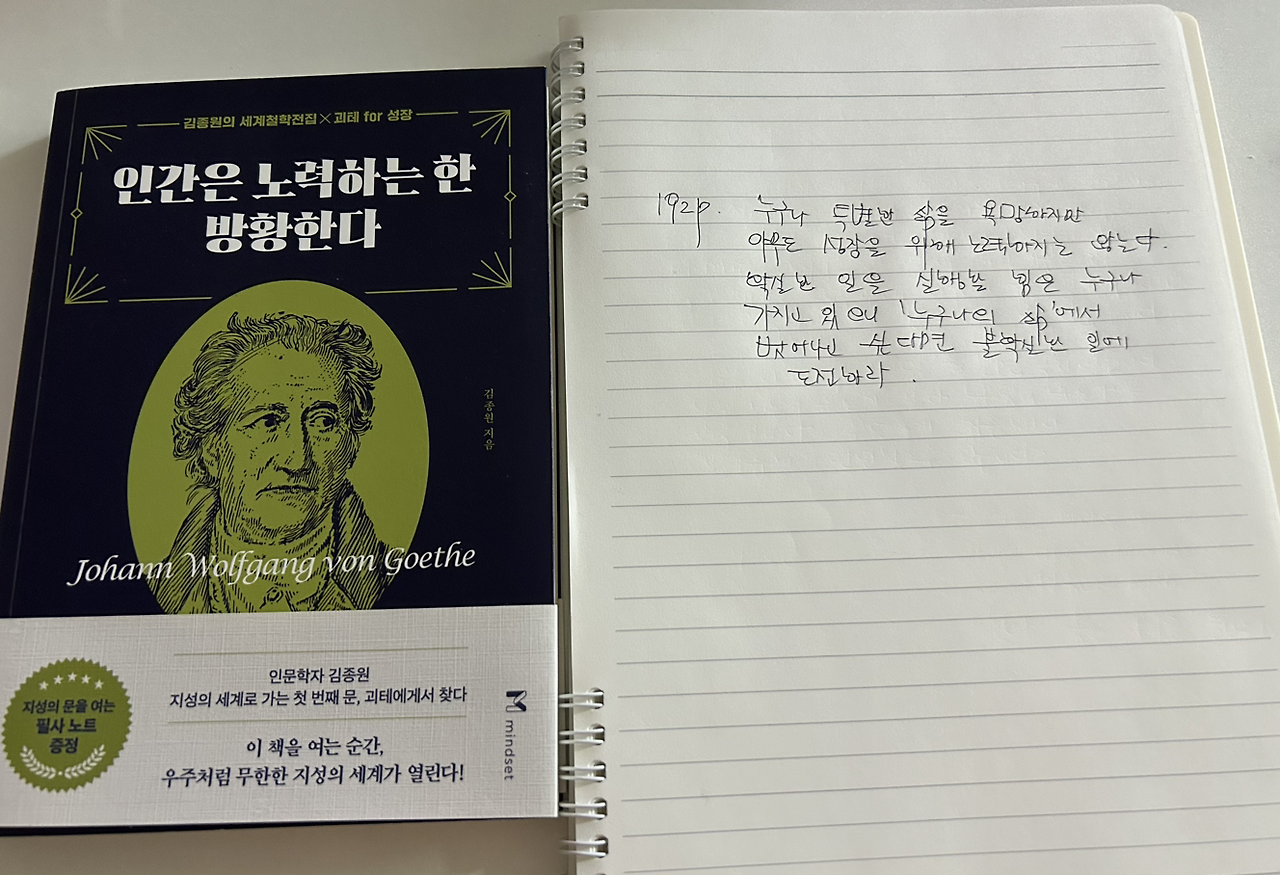 김종원의 세계철학전집×괴테 for 성장
인간은 노력하는 한
방황한다
김종원 지음
Johann Wolfgang von Goethe
인문학자 김종원
지성의 세계로 가는 첫 번째 문, 괴테에게서 찾다
이 책을 여는 순간,
우주처럼 무한한 지성의 세계가 열린다!
지성의 문을 여는
필사 노트
증정
mindset
192p. 누구나 특별한 삶을 욕망하지만
아무도 성장을 위해 노력하지는 않는다.
확실한 일을 실행할 힘은 누구나
가지고 있으니 '누구나의 삶'에서
벗어나고 싶다면 불확실한 일에
도전하라.